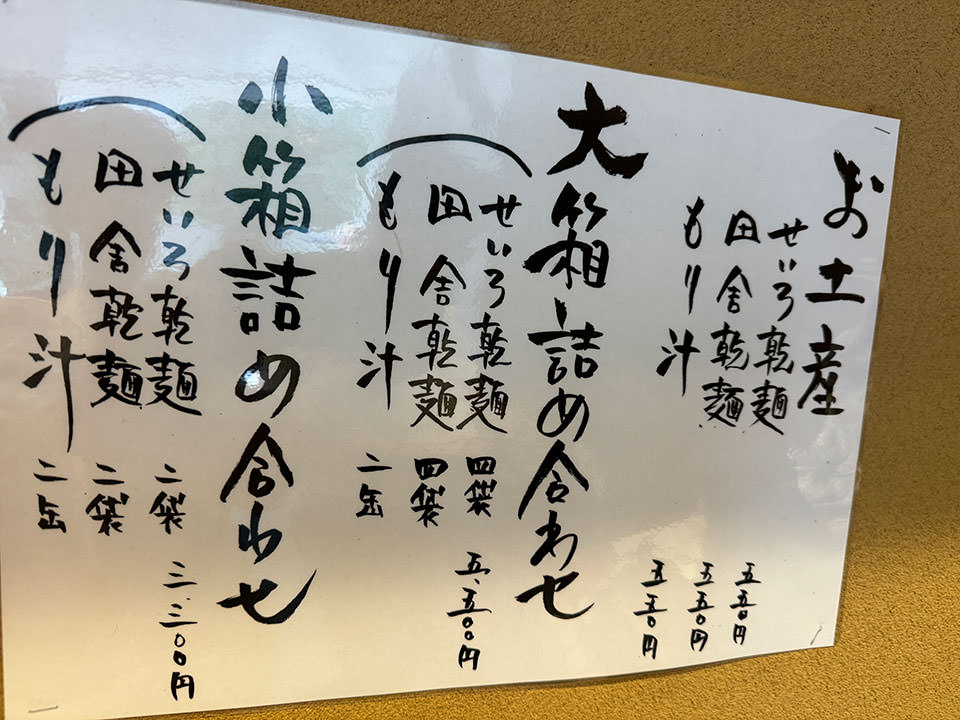 お土産
せいろ乾麺 五五〇円
田舎乾麺 五五〇円
もり汁 五五〇円
大箱詰め合わせ
せいろ乾麺 四袋
田舎乾麺 四袋
もり汁 二缶
五、五〇〇円
小箱詰め合わせ
せいろ乾麺 二袋
田舎乾麺 二袋
もり汁 二缶
三、三〇〇円